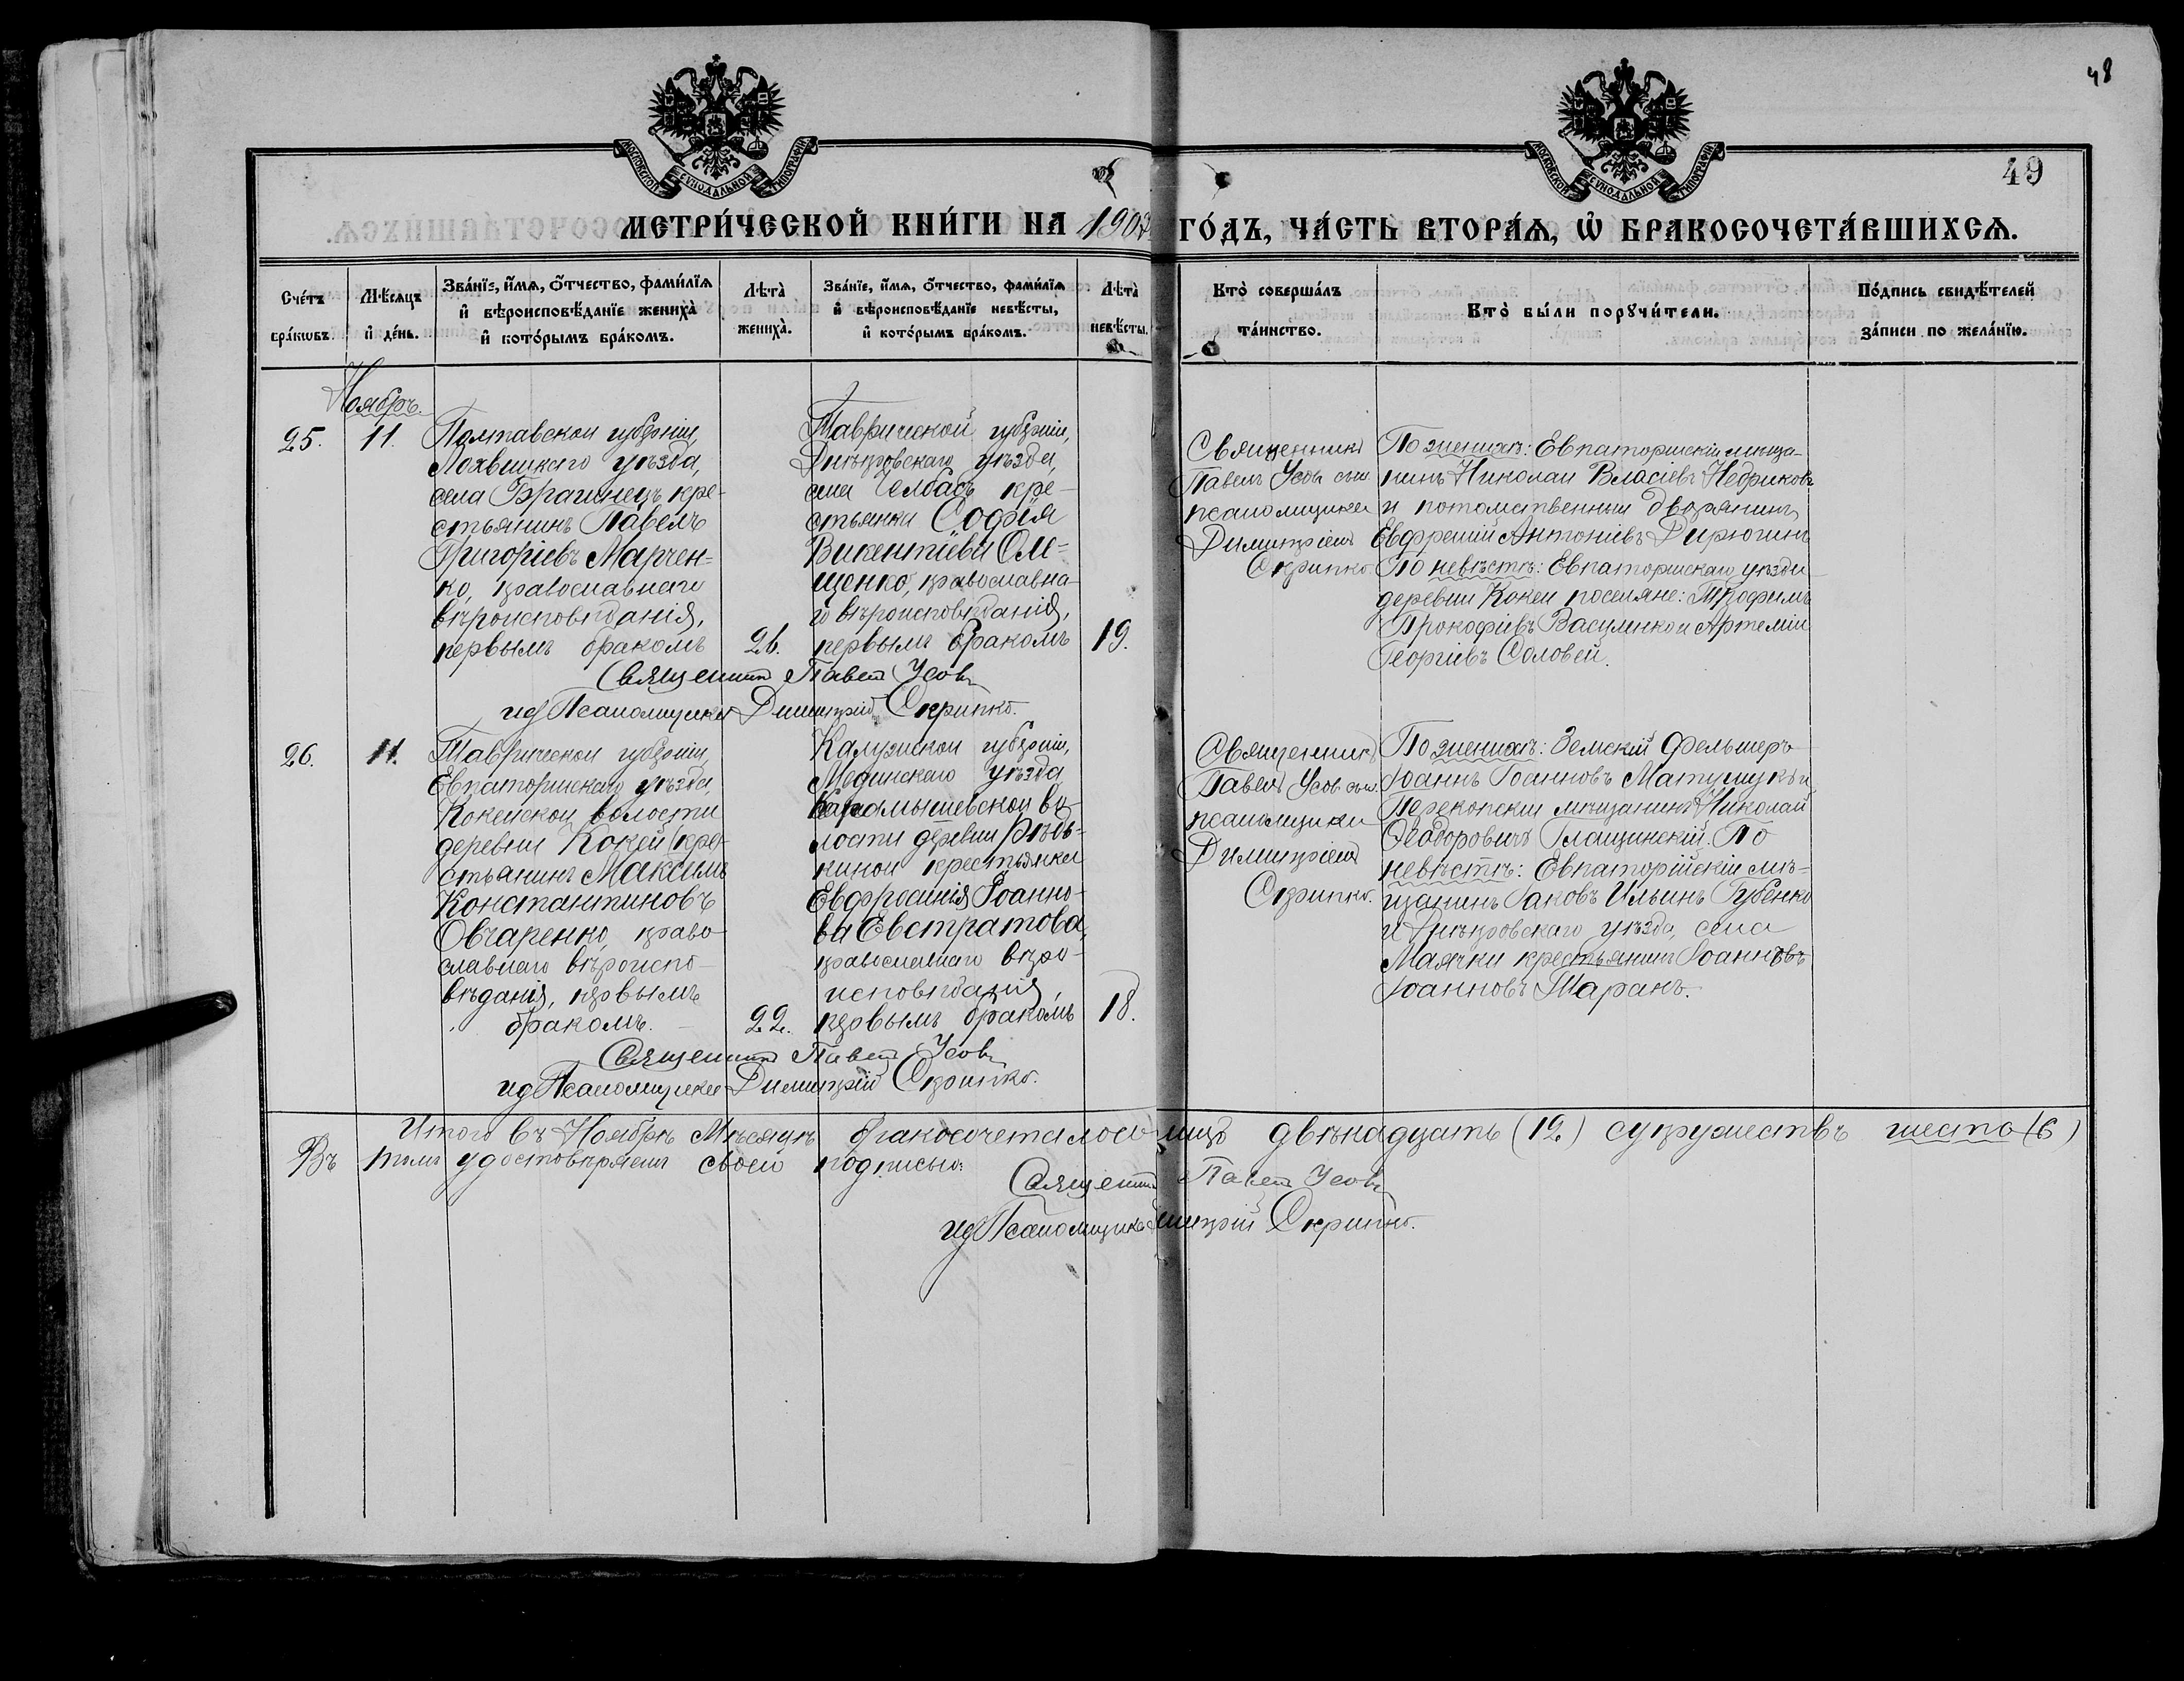 48
49
МОСКОВСКОЙ СѴНОДАЛЬНОЙ ТИПОГРАФІИ
МОСКОВСКОЙ СѴНОДАЛЬНОЙ ТИПОГРАФІИ
МЕТРИ́ЧЕСКОЙ КНИ́ГИ НА 1902 ГО́ДЪ, ЧА́СТЬ ВТОРА́Ѧ, Ѡ҆ БРАКОСОЧЕТА́ВШИХСѦ.
Сче́тъ
бра́кѡвъ.
Мѣ́сѧцъ
и҆ де́нь.
Зва́нїе, и҆́мѧ, ѻ҆́тчество, фами́лїѧ
и҆ вѣроисповѣ́данїе жениха̀
и҆ кото́рымъ бра́комъ.
Лѣта̀
жениха̀.
Зва́нїе, и҆́мѧ, ѻ҆́тчество, фами́лїѧ
и҆ вѣроисповѣ́данїе невѣ́сты,
и҆ кото́рымъ бра́комъ.
Лѣта̀
невѣ́сты.
Кто̀ соверша́лъ
та́инство.
Кто̀ бы́ли порꙋчи́тели.
По́дпись свидѣ́телей
за́писи по жела́нїю.
Ноябрь.
25.
11.
Полтавской губерніи,
Лохвицкаго уѣзда,
села Брагинецъ кре-
стьянинъ Павелъ
Григоріевъ Марчен=
ко, православнаго
вѣроисповѣданія,
первымъ бракомъ
26.
Таврической губерніи,
Днѣпровскаго уѣзда,
села Челбасъ кре-
стьянка Софія
Викентіева Оме=
щенко, православна-
го вѣроисповѣданія,
первымъ бракомъ
19.
Священникъ
Павелъ Усовъ съ и.
псаломщика
Димитріемъ
Скрипко.
По женихѣ: Евпаторійскій мѣща-
нинъ Николай Власіевъ Недриковъ
и потомственный дворянинъ
Евфремій Антоніевъ Дирюгинъ
По невѣстѣ: Евпаторійскаго уѣзда
деревни Кокей поселяне: Трофимъ
Прокофіевъ Василенко и Артемій
Георгіевъ Соловей.
Священникъ Павелъ Усовъ
ид Псаломщика Димитрій Скрипко.
26.
11.
Таврической губерніи,
Евпаторійскаго уѣзда,
Кокейской волости
деревни Кокей кре-
стьянинъ Максимъ
Константиновъ
Овчаренко, право-
славнаго вѣроиспо-
вѣданія, первымъ
бракомъ.
22.
Калужской губерніи,
Медынскаго уѣзда
Карамышевской во-
лости деревни Рѣдь-
киной крестьянка
Евфросинія Іоанно-
ва Евстратова,
православнаго вѣро-
исповѣданія,
первымъ бракомъ
18.
Священникъ
Павелъ Усовъ съ и.
псаломщика
Димитріемъ
Скрипко.
По женихѣ: Земскій фельшеръ
Іоаннъ Іоанновъ Матушукъ и
Перекопскій мѣщанинъ Николай
Ѳеодоровичъ Глащинскій. По
невѣстѣ: Евпаторійскій мѣ=
щанинъ Іаковъ Ильинъ Губенко
и Днѣпровскаго уѣзда, села
Маячки крестьянинъ Іоанновъ
Іоанновъ Шаранъ.
Священникъ Павелъ Усовъ
ид Псаломщика Димитрій Скрипко.
Итого въ Ноябрѣ Мѣсяцѣ бракосочеталось лицъ двѣнадцать (12) супружествъ шесть (6)
Въ томъ удостовѣряемъ своею подписью:
Священникъ Павелъ Усовъ
ид Псаломщика Димитрій Скрипко.